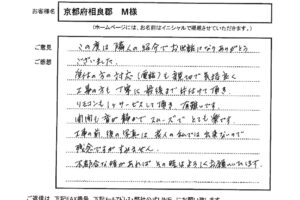 お客様名 京都府相良郡 M様
(ホームページには、お名前はイニシャルで掲載させていただきます。)
ご意見
ご感想
この度は 隣人の紹介でお世話になりありがとう
ございました。
受付の方の対応(電話)も親切で気持良く
工事の方も 丁寧に 最後まで片付けて 頂き
リモコンも1ヶサービスして頂き 有難いです。
開閉も音が静かで スムーズで とても楽です
工事の前、後の写真は 老人の私では 出来ないので
残念ですがすみません。
不都合な時があれば その時はよろしくお願いいたします。